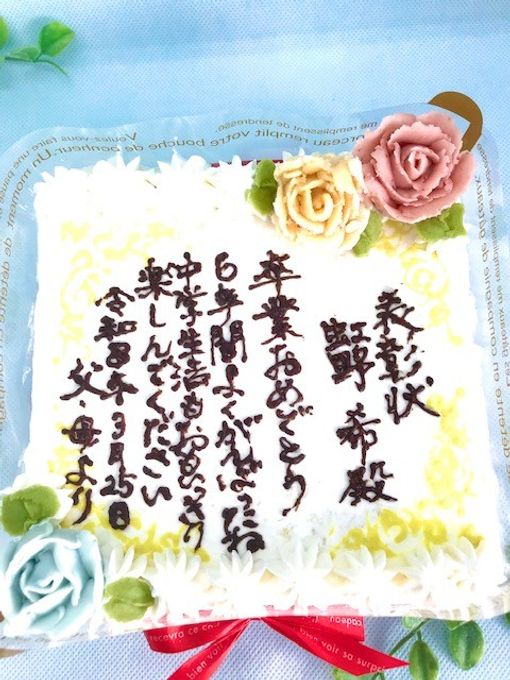 表彰状
虹野 希殿
卒業おめでとう
6年間よくがんばったね
中学生活もおもいっきり
楽しんでください
令和8年3月25日
父・母より
Voulez-vous faire une pause
me remplissent de tendresse.
rceau remplit votre bouche de bonheur. Un moment de détente
détente en compagnie de gâteaux
cadeau
recevra ce
bien voir sa surpri
bien voir